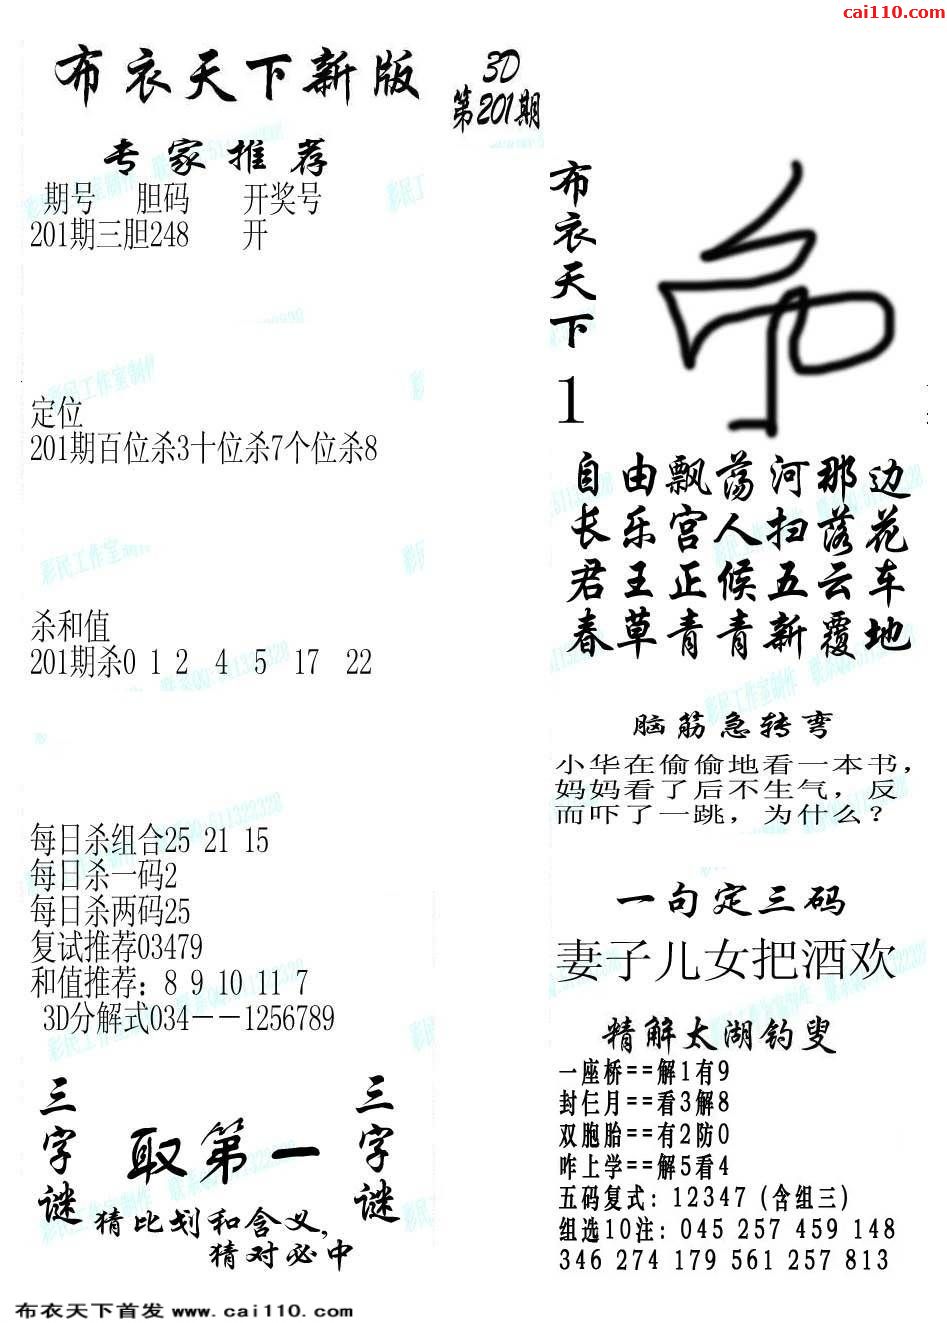 cai110.com
布衣天下新版
3D
第201期
专家推荐
期号 胆码 开奖号
201期三胆248 开
定位
201期百位杀3十位杀7个位杀8
杀和值
201期杀0 1 2 4 5 17 22
每日杀组合25 21 15
每日杀一码2
每日杀两码25
复试推荐03479
和值推荐：8 9 10 11 7
3D分解式034－－1256789
三字谜
取第一
三字谜
猜比划和含义，
猜对必中
布衣天下
1
自由飘荡河那边
长乐宫人扫落花
君王正候五云车
春草青青新覆地
脑筋急转弯
小华在偷偷地看一本书，
妈妈看了后不生气，反
而吓了一跳，为什么？
一句定三码
妻子儿女把酒欢
精解太湖钓叟
一座桥==解1有9
封仨月==看3解8
双胞胎==有2防0
咋上学==解5看4
五码复式：12347（含组三）
组选10注：045 257 459 148
346 274 179 561 257 813
布衣天下首发 www.cai110.com